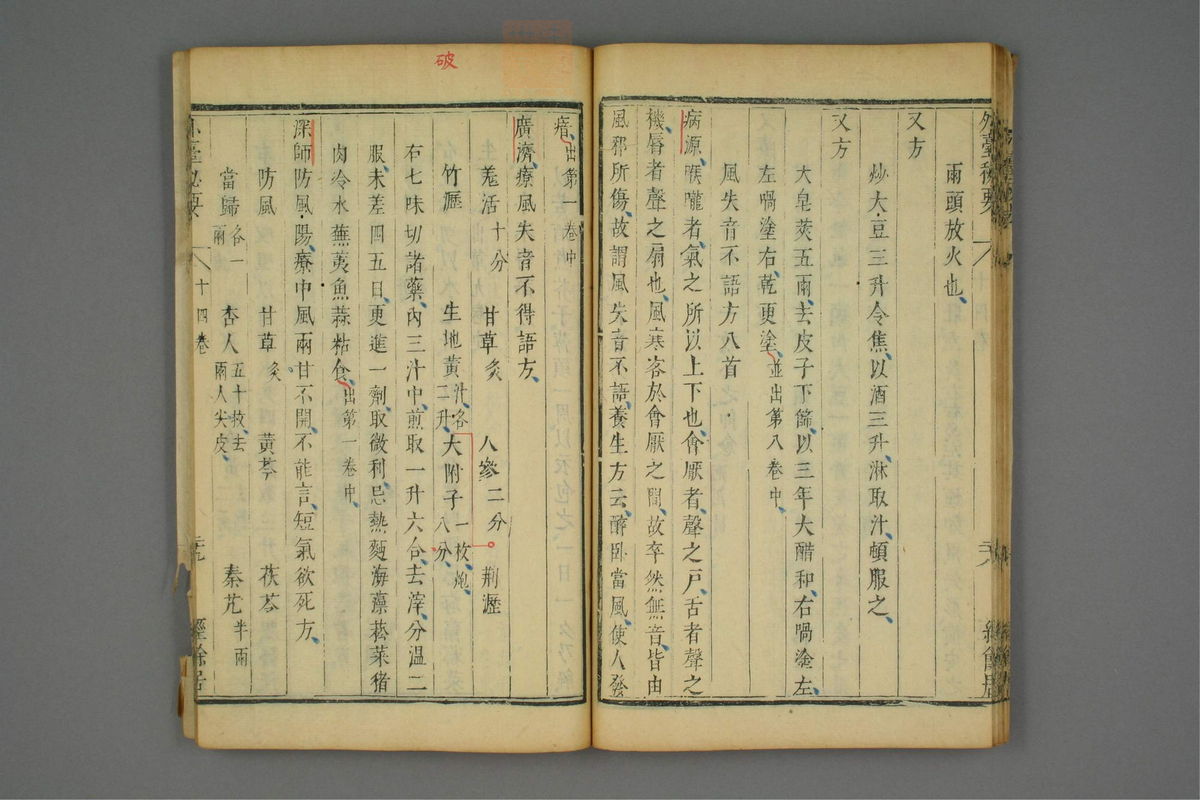 外臺秘要
兩頭放火也
又方
炒大豆三升令焦以酒三升淋取汁頓服之
又方
大皂莢五兩去皮子下篩以三年大醋和右喎塗左
左喎塗右乾更塗並出第八卷中
風失音不語方八首
病源喉嚨者氣之所以上下也會厭者聲之戶舌者聲之
機唇者聲之扇也風寒客於會厭之間故卒然無音皆由
風邪所傷故謂風失音不語養生方云醉臥當風使人發
瘖出第一卷中
廣濟療風失音不得語方
羗活十分 甘草炙 人參二分 荆瀝
竹瀝 生地黃汁各二升 大附子一枚炮八分
右七味切諸藥內三汁中煎取一升六合去滓分溫二
服未差四五日更進一劑取微利忌熱麵海藻菘菜猪
肉冷水蕪荑魚蒜粘食出第一卷中
深師防風湯療中風兩甘不開不能言短氣欲死方
防風 甘草炙 黃芩 茯苓
當歸各一兩 杏人五十枚去兩人尖皮 秦艽半兩
外臺秘要 十四卷 二十九 經餘居
破